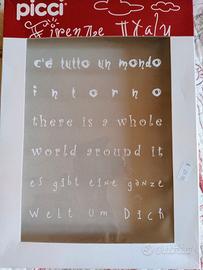 picci
Firenze Italy
c'è tutto un mondo
intorno
there is a whole
world around it
es gibt eine ganze
Welt um Dich